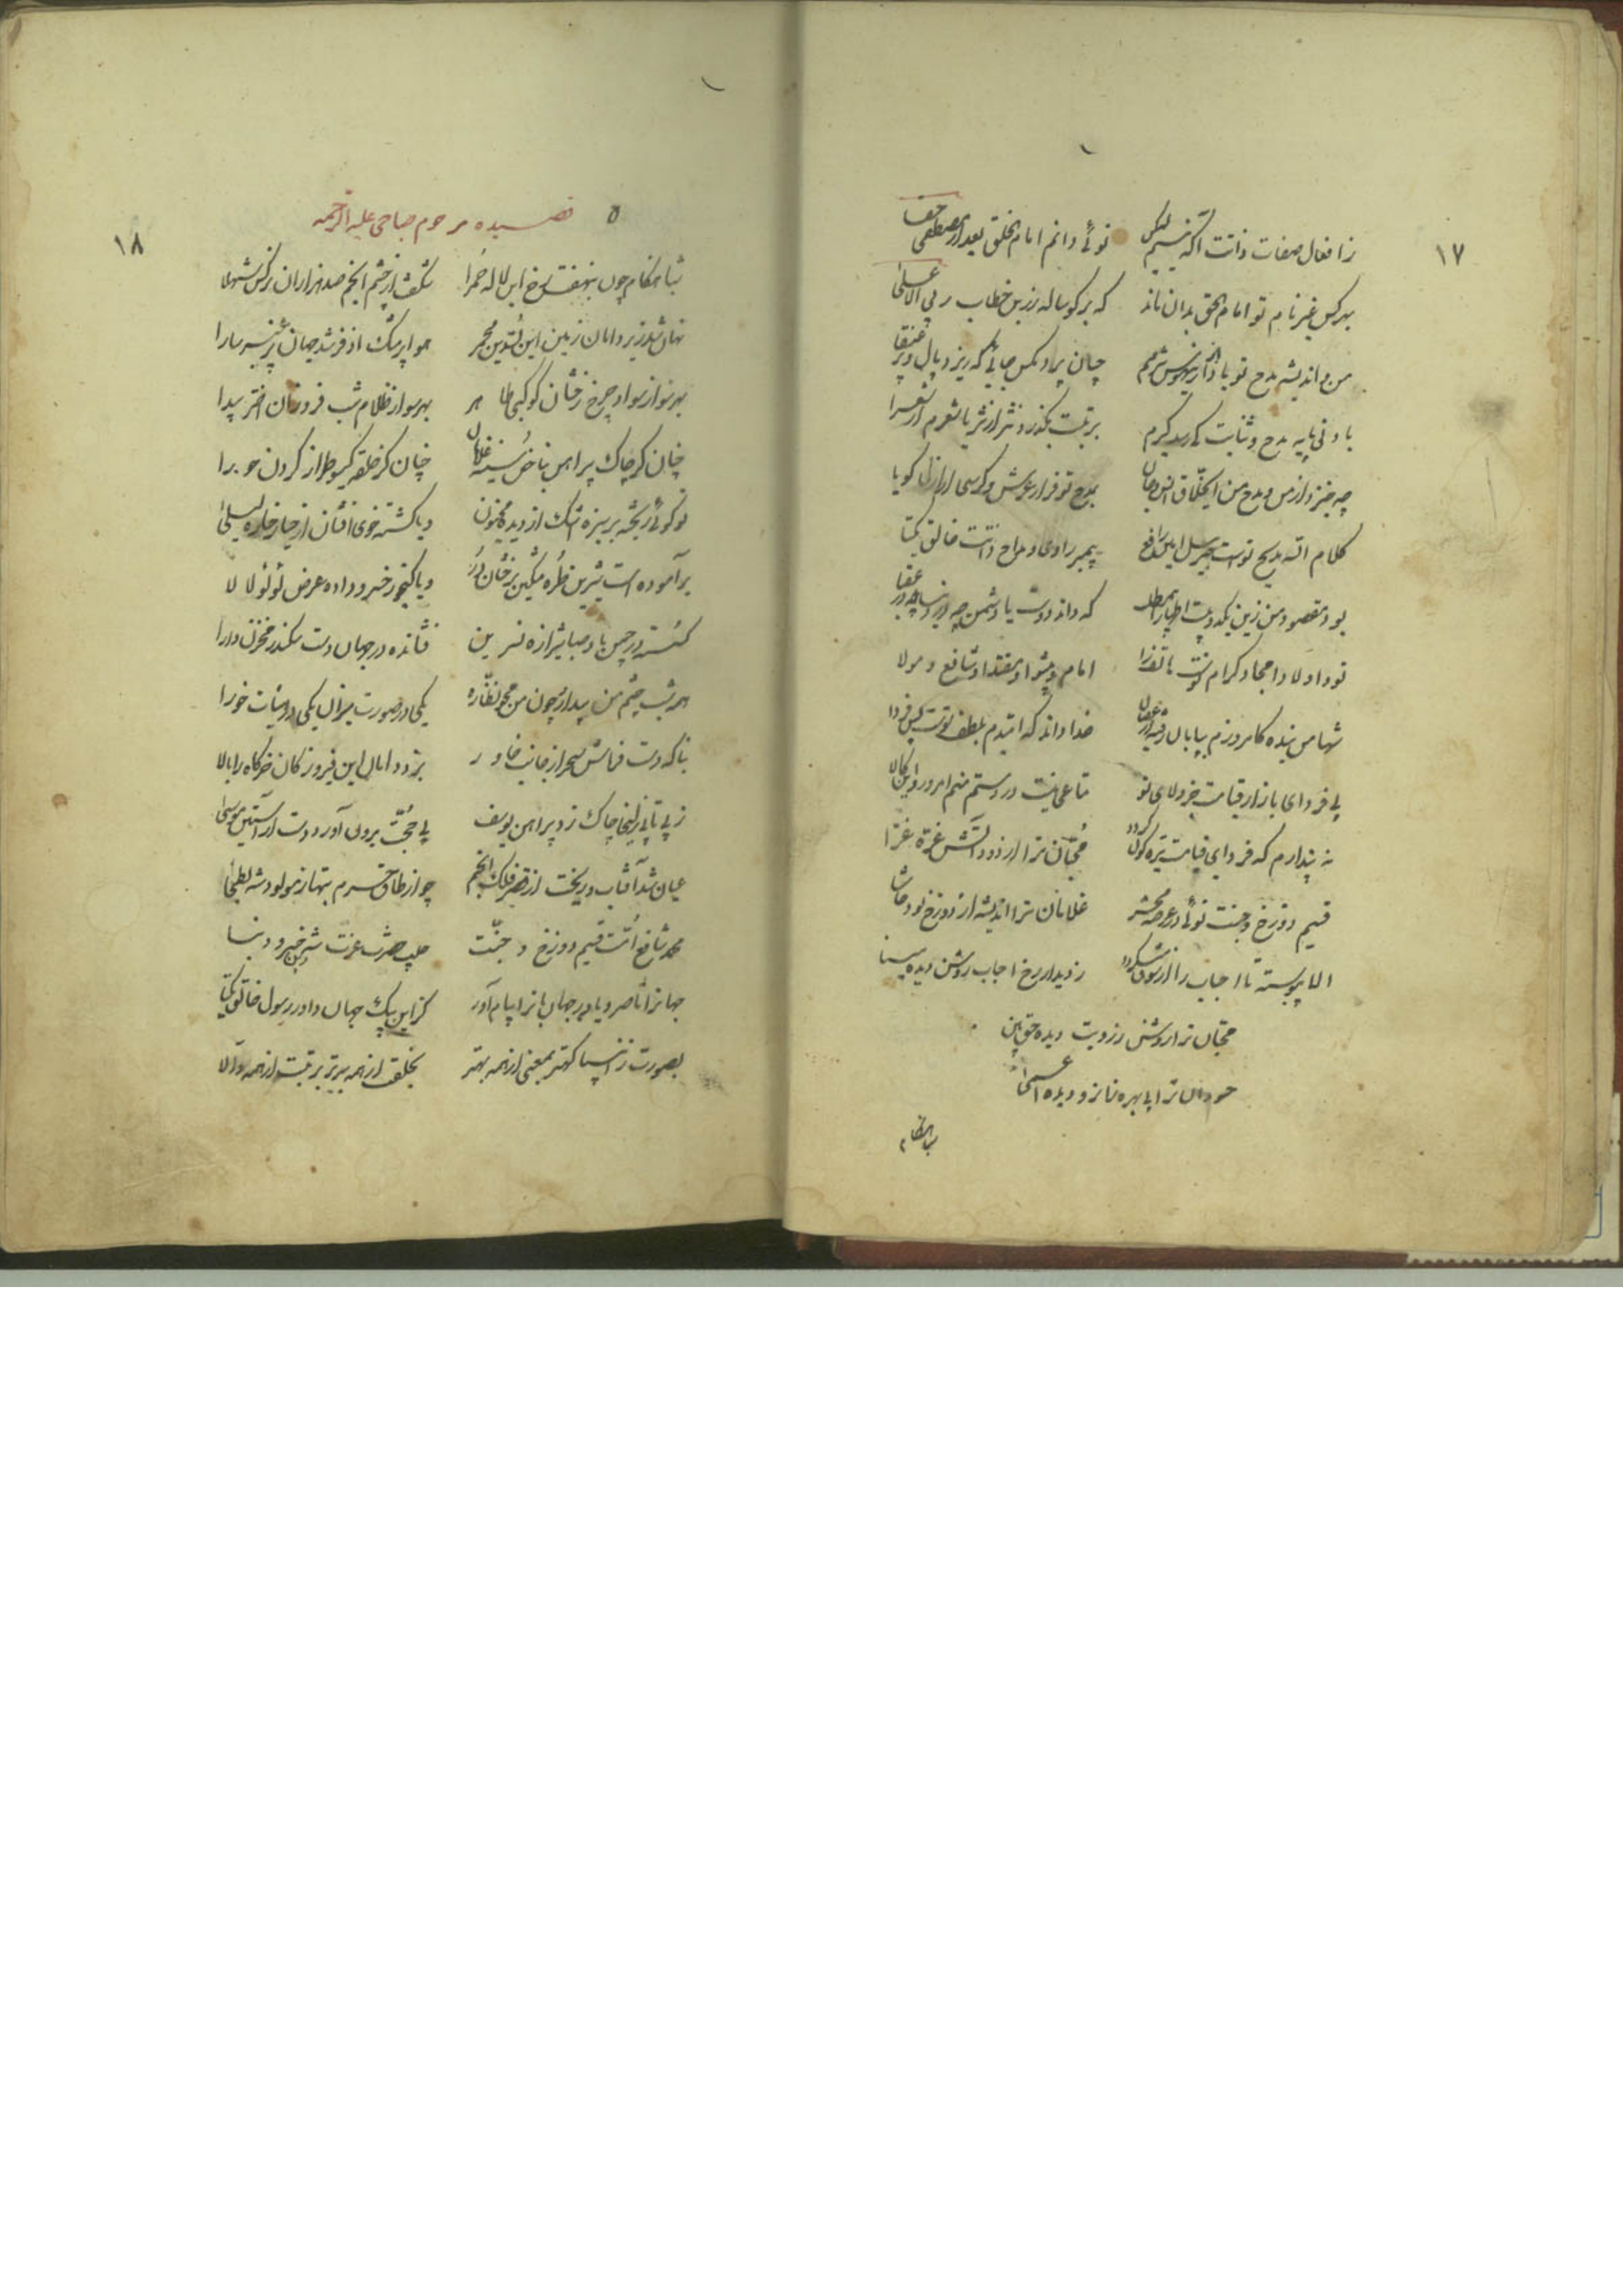 ۱۷
ز افعال صفات ذاتت اگه نیستم لیکن توئی دانم امام الخلق بعد از مصطفی حقا
بهر کس غیر نام تو امام الحق بدان ماند که بر گوساله زرین خطاب ربی الاعلی
من و اندیشه مدح تو باد شرمم چسان پرد مگس جائی که ریزد بال و پر عنقا
بادنی پایه مدح و ثنایت کی رسد گیرم برتبت بگذرد نثر از نثریا شعرم از شعرا
چه خیزد از من و مدح من ای خلاق انس و جان بمدح تو فراز عرش و کرسی از ازل گویا
کلام الله مدیح تست جبریل امین رافع پیمبر راوی و مداح ذاتت خالق یکتا
بود مقصود من زین یکدو بیت اظهار این مطلب که داند دوست با دشمن چه در دنیا چه در عقبا
تو و اولاد امجاد کرام تست امام و پیشوا و مقتدا و شافع و مولا
شها من بنده کامروزم بپایان رفته از عصیان خدا داند که امیدم بلطف تست پس فردا
پی فردای بازار قیامت جز ولای تو متاعی نیست در دستم منم امروز و این کالا
نه پندارم که فردای قیامت تیره گون گردد محبان ترا از دود آتش غرّهٔ غرّا
قسیم دوزخ و جنت توئی در عرصه محشر غلامان ترا اندیشه از دوزخ بود حاشا
الا پیوسته تا احباب را از شوق ز دیدار رخ احباب روشن دیده بینا
محبان ترا روشن ز رویت دیده حق بین
حسودان ترا بی بهره زان رو دیده اعمی
شباهنگام
۱۸
۵ قصیده مرحوم صباحی علیه الرحمه
شباهنگام چون بنهفت رخ این لاله حمرا شکفت از چشم انجم صد هزاران نرگس شهلا
نهان شد زیر دامان زمین این بسدین مجمر هوا پر مشک اذفر شد جهان پر عنبر سارا
بهر سو از سواد چرخ رخشان کوکبی طاهر بهر سو از ظلام شب فروزان اختر پیدا
چنان کز چاک پیراهن بناخن سینه غلمان چنان کز حلقه گیسو طراز گردن حورا
تو گوئی ریخته بر سبزه اشک از دیده مجنون و یا گشته خوی افشان از حیا رخساره لیلی
برآموده است شیرین طره مشکین برخشان در و یا گنجور خسرو داده عرض لؤلؤ لالا
گسسته در چمن باد صبا شیرازه نسرین فشانده در جهان دست سکندر مخزن دارا
همه شب چشم من بیدار چون من محو نظاره یکی در صورت میزان یکی در هیئات خورا
بناگه دست فراش سحر از جانب خاور بزد دامان این فیروزه گان خرگاه را بالا
ز بی تابی زلیخا چاک زد پیراهن یوسف پی حجت برون آورد دست از آستین موسی
عیان شد آفتاب و ریخت از قصر فلک انجم چو از طاق حرم بتها ز مولود شه بطحا
محمد شافع امت قسیم دوزخ و جنت حبیب حضرت عزت شه دین خسرو دنیا
جهانرا ناصر و یاور جهانبانرا پیام آور گزین پیک جهان داور رسول خالق یکتا
بصورت ز انبیا کهتر بمعنی از همه بهتر بخلقت از همه برتر برتبت از همه والا